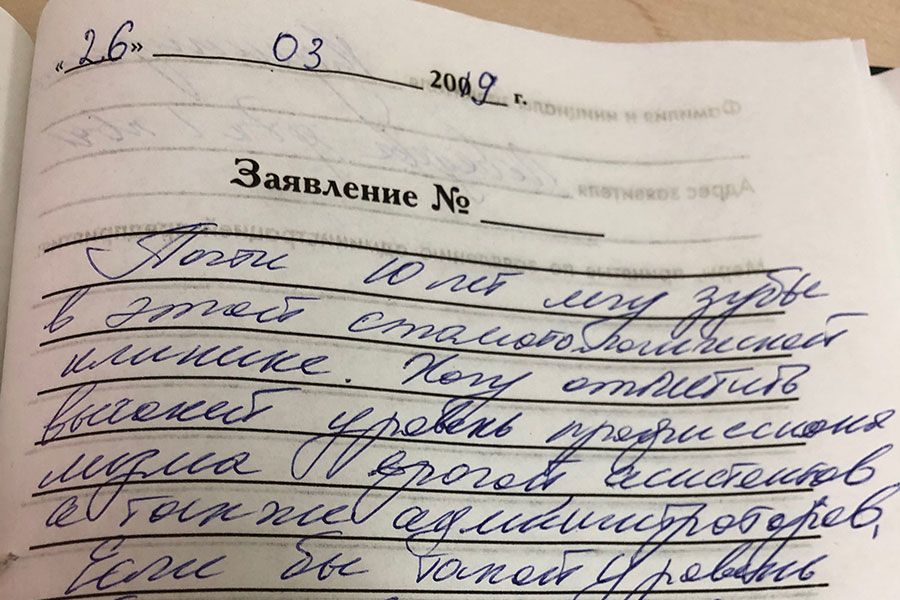 «26» 03 2019 г.
Заявление №
Почти 10 лет лечу зубы
в этой стоматологической
клинике. Хочу отметить
высокий уровень профессиона
лизма врачей ассистентов
а также администраторов,
Если бы такой уровень